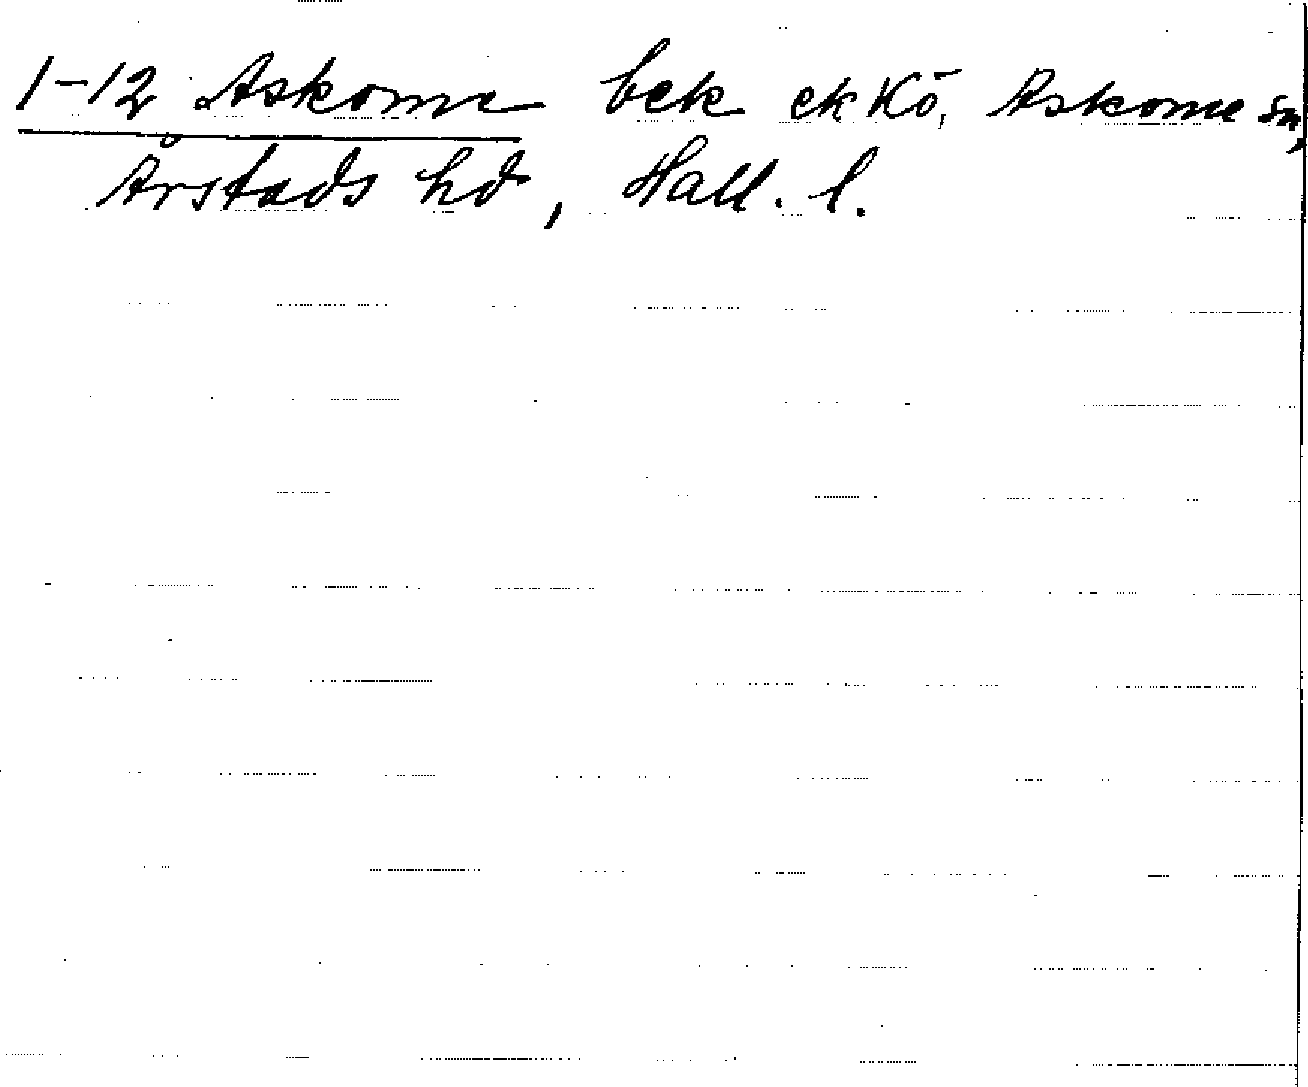 1-12 Askome bek ekKö, Askome sn,
Årstads hd, Hall. l.